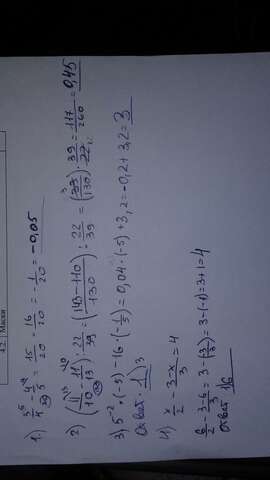 4.2. Маски
1) 3/4 - 4/5 = 15/20 - 16/20 = -1/20 = -0,05
2) (11/10 - 11/13) : 22/39 = (143-110/130) : 22/39 = (33/130) · 39/22 = 117/260 = 0,45
3) 5⁻² · (-5) - 16 · (-1/5)³ = 0,04 · (-5) + 3,2 = -0,2 + 3,2 = 3
Ответ: 1) 3
4) x/2 - 3-x/3 = 4
6/2 - 3-6/3 = 3 - (3/3) = 3 - (-1) = 3+1 = 4
Ответ 1)6